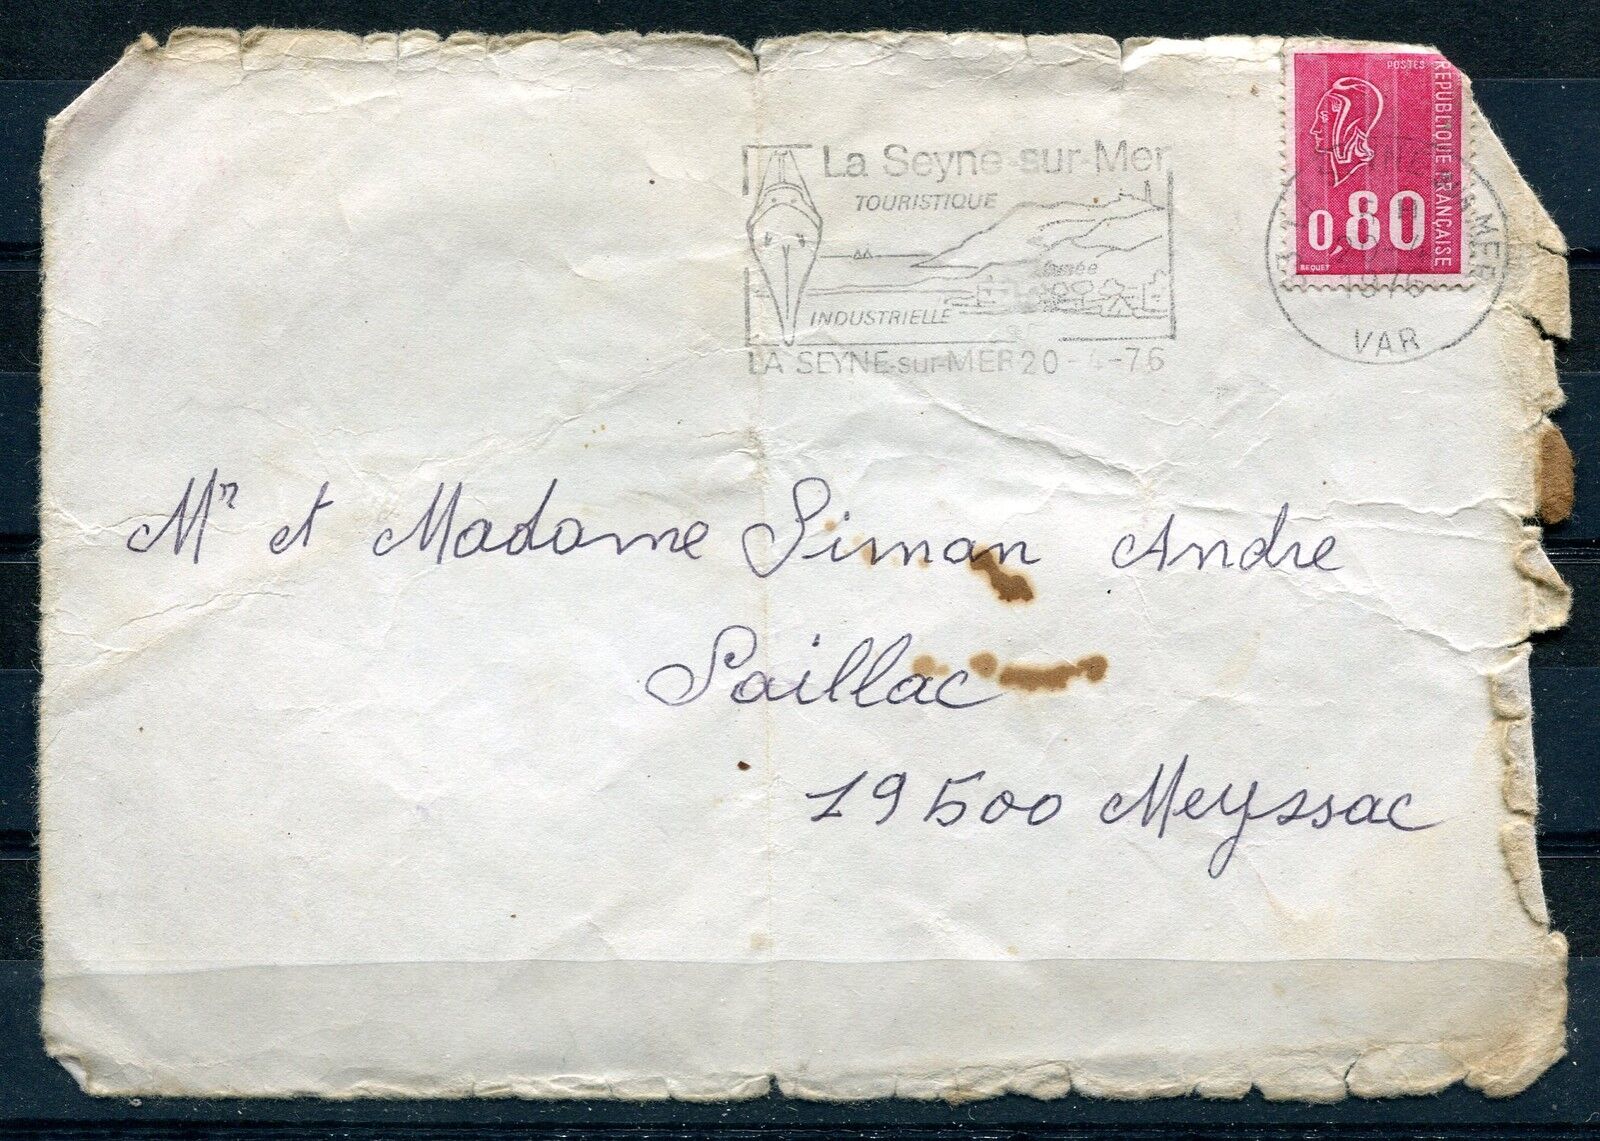 La Seyne-sur-Mer
TOURISTIQUE
INDUSTRIELLE
LA SEYNE-sur-MER 20-4-76
POSTES
REPUBLIQUE FRANÇAISE
0,80
BEQUET
1976
VAR
Mr et Madame Siman Andre
Saillac
19500 Meyssac